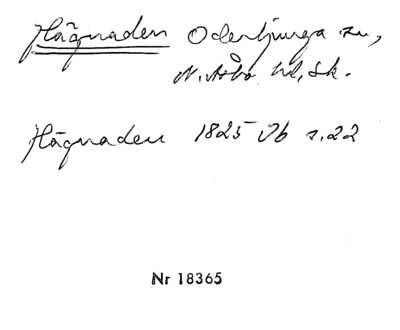 Hägnaden Oderljunga sn,
N. Åsbo hd, Sk.
Hägnaden 1825 Ob s. 22
Nr 18365